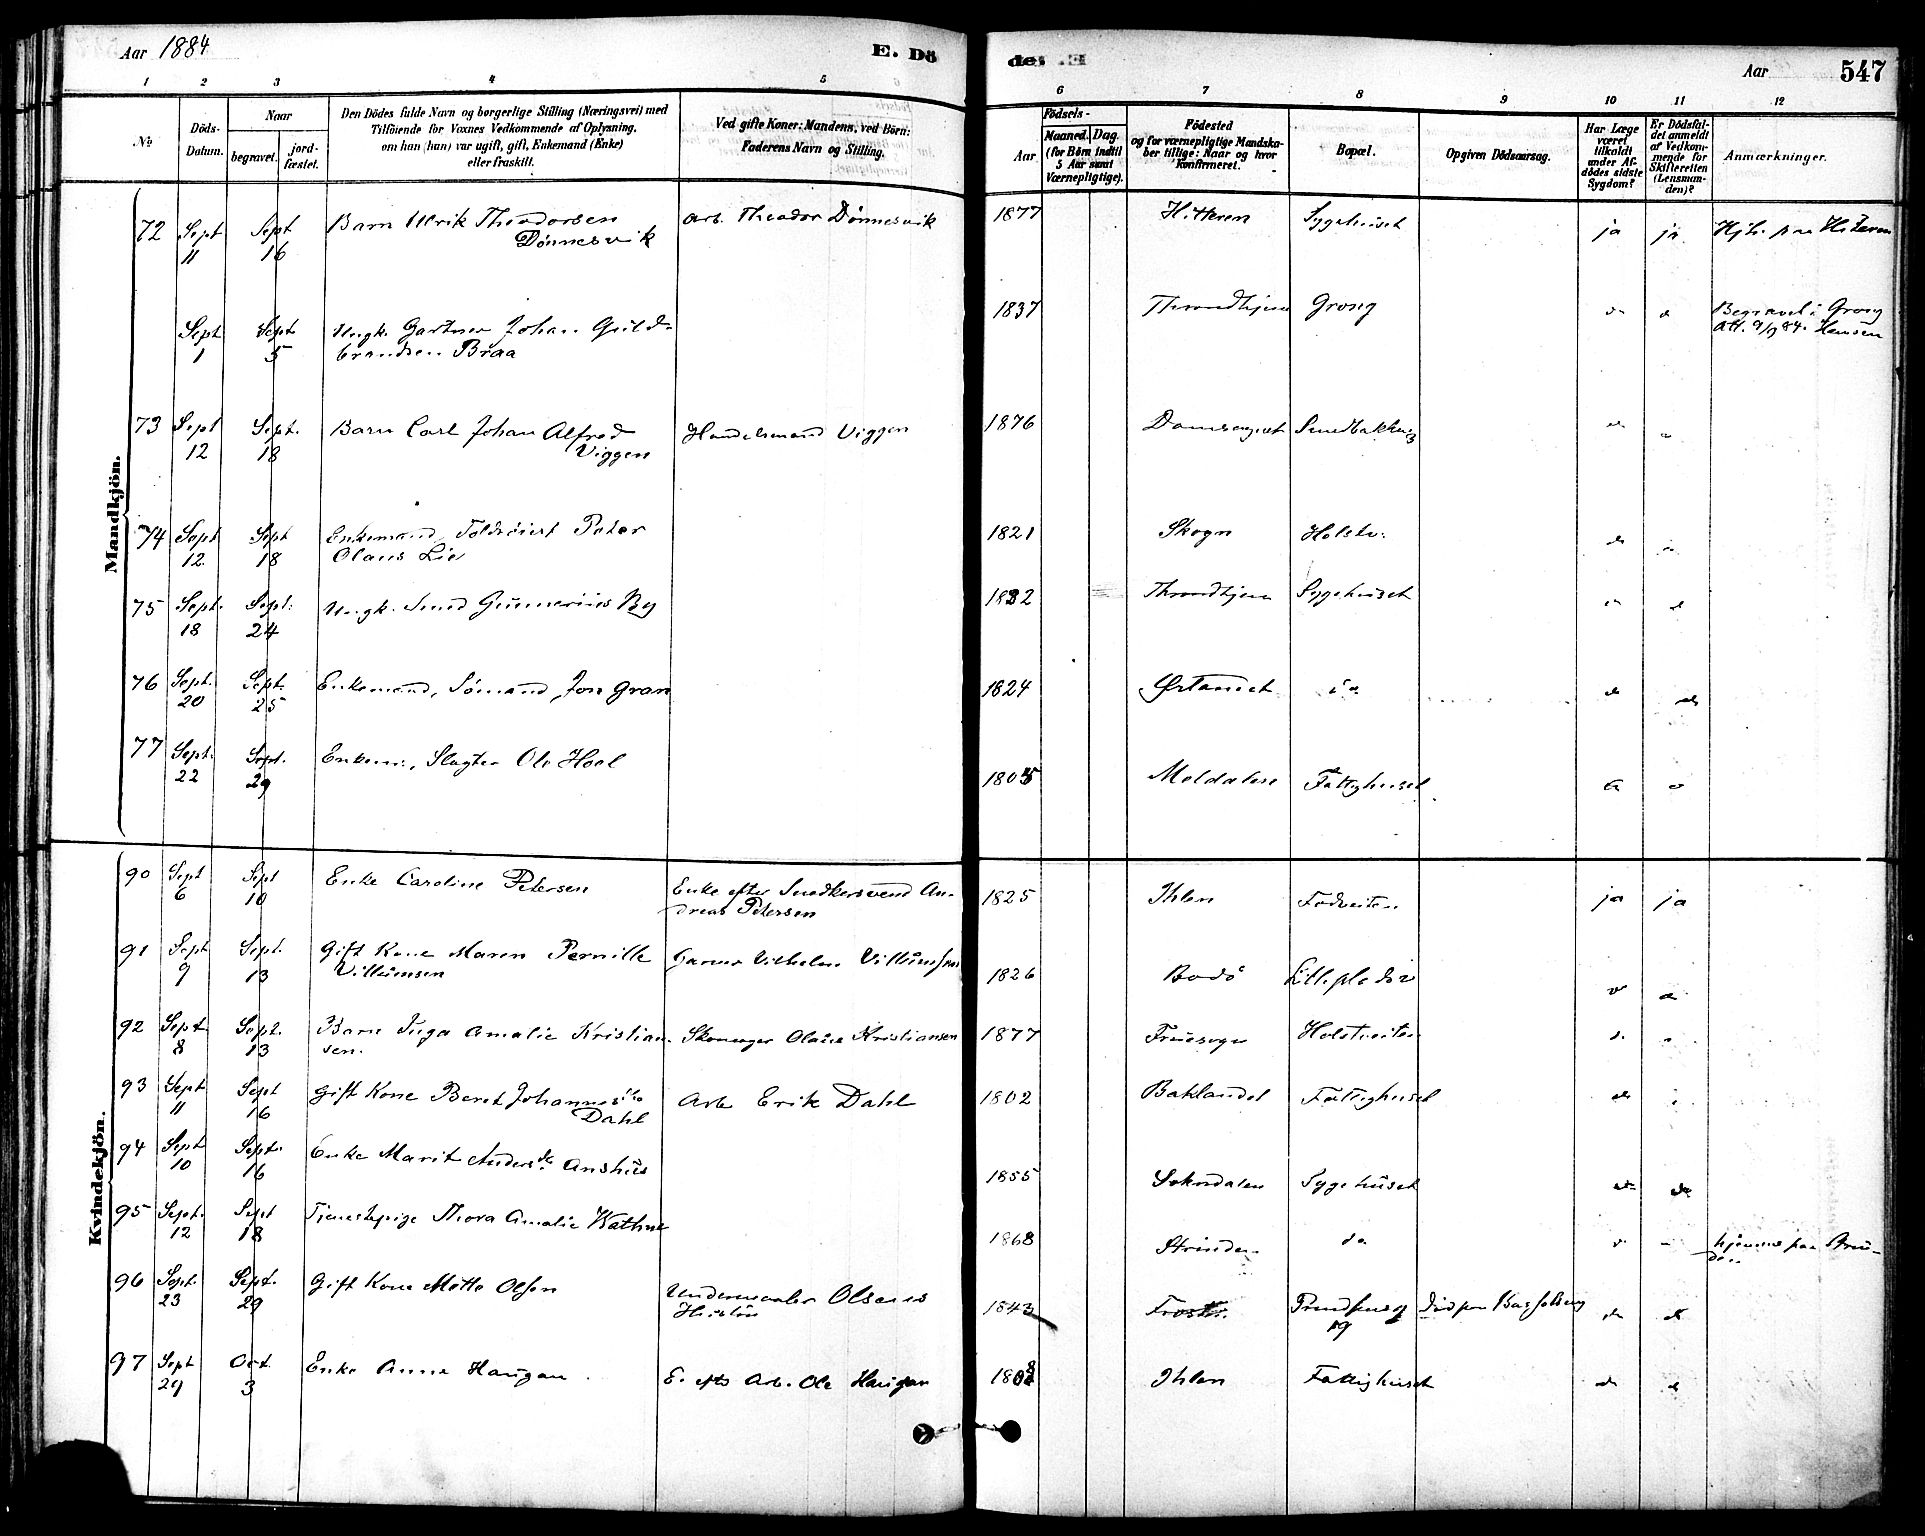 Aar 1884
E. Dö
des E.
Aar
547
1 2 3 4 5 6 7 8 9 10 11 12
No
Döds-
Datum.
Naar
begravet.
jord-
fæstet.
Den Dödes fulde Navn og borgerlige Stilling (Næringsvei) med
Tilföiende for Voxnes Vedkommende af Oplysning.
om han (hun) var ugift, gift, Enkemand (Enke)
eller fraskilt.
Ved gifte Koner: Mandens, ved Börn:
Faderens Navn og Stilling.
Födsels-
Aar
Maaned. Dag.
(for Börn indtil
5 Aar samt
Værnepligtige).
Födested
og for værnepligtige Mandska-
ber tillige: Naar og hvor
konfirmeret.
Bopæl.
Opgiven Dödsaarsag.
Har Læge
været
tilkaldt
under Af-
dödes sidste
Sygdom?
Er Dödsfal-
det anmeldt
af Vedkom-
mende for
Skifteretten
(Lensman-
den)?
Anmærkninger.
Mandkjön.
72 Sept 11 Sept 16 Barn Ulrik Theodorsen
Dönnesvik
Arb. Theodor Dönnesvik 1877 Hitteren Sygehuset ja ja Hjh. paa Hiteren
Sept 1 Sept 5 Ungk. Gartner Johan Guld-
brandsen Braa
1837 Throndhjem Grong Begravet i Grong
Att. 9/9 84. Hansen
73 Sept 12 Sept. 18 Barn Carl Johan Alfred
Viggen
Handelsmand Viggen 1876 Domsognet
74 Sept 12. Sept 18 Enkemand, Peter
Olaus Lie
1821 Skogn Holstv:
75 Sept. 18 Sept. 24 Ungk. Smed Gunnerius By 1832 Throndhjem Sygehuset
76 Sept. 20 Sept. 25 Enkemand, Sömand Jon Gran 1824 Ørlandet do
77 Sept. 22 Sept. 29 Enkem., Slagter Ole Hoel 1805 Meldalen Fattighuset
Kvindekjön.
90 Sept 6 Sept 10 Enke Caroline Petersen
Enke efter Snedkersvend An-
dreas Petersen
1825 Ihlen ja ja
91 Sept 9 Sept. 13 Gift Kone Maren Pernille
Villumsen
Garver Vilhelm Villumsen 1826 Bodö
92 Sept 8 Sept. 13 Barn Inga Amalie Kristian-
sen.
Skomager Olaus Kristiansen 1877 Fruesogn Holstveiten
93 Sept 11 Sept 16 Gift Kone Beret Johannesdr
Dahl
Arb Erik Dahl 1802 Baklandet Fattighuset
94 Sept 10 Sept. 16 Enke Marit Andersdr. Anshus 1855 Soknedalen Sygehuset
95 Sept. 12 Sept 18 Tjenestepige Thora Amalie Wathne 1868 Strinden do hjemme paa Strin-
den
96 Sept. 23 Sept. 29 Gift Kone Mette Olsen
Olsens
Hustru
1843 Frosta. Prindsensg
19
97 Sept 29 Oct. 3 Enke Anne Haugan.
E. efter Arb. Ole Haugan 1808 Ihlen Fattighuset